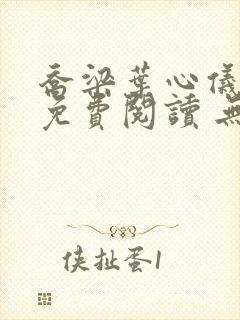 喬梁葉心儀
免費閱讀 無
侠扯蛋1